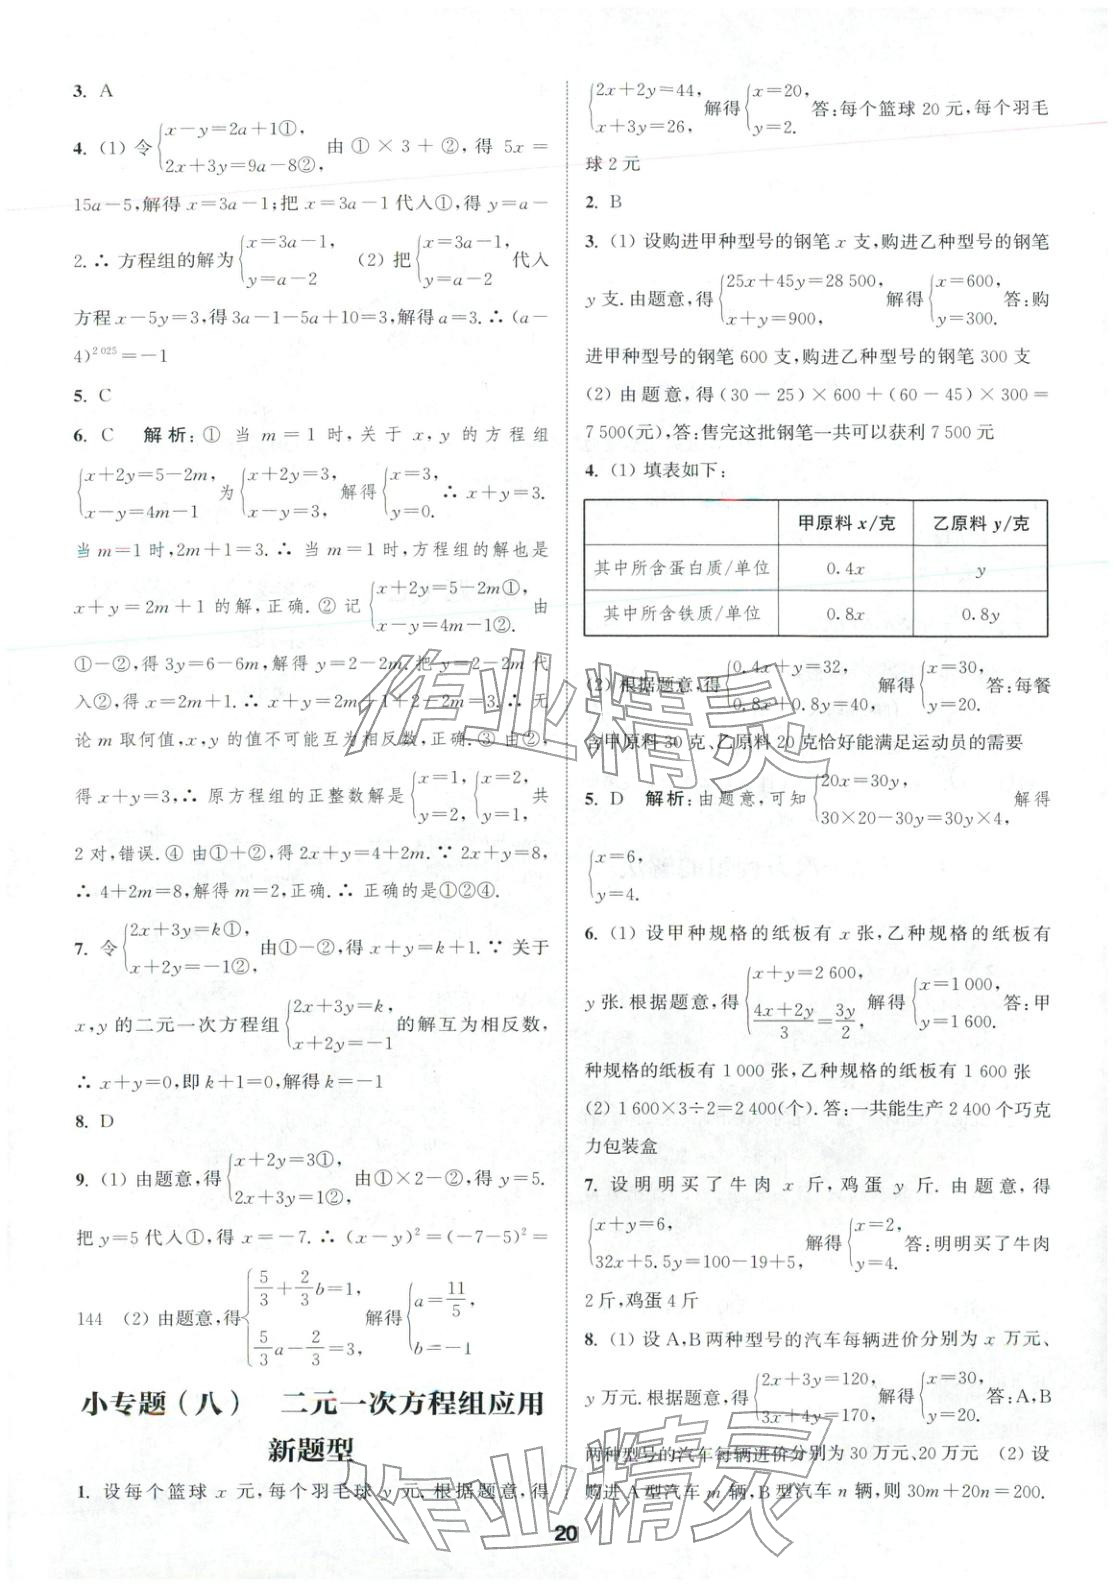 3. A
4. (1) 令{x－y＝2a＋1①, 2x＋3y＝9a－8②, 由①×3＋②,得 5x＝
15a－5,解得 x＝3a－1;把 x＝3a－1代入①,得 y＝a－
2.∴ 方程组的解为{x＝3a－1, y＝a－2 (2) 把{x＝3a－1, y＝a－2 代入
方程 x－5y＝3,得 3a－1－5a＋10＝3,解得 a＝3.∴ (a－
4)²⁰²⁵＝－1
5. C
6. C 解析:① 当 m＝1 时,关于 x,y 的方程组
{x＋2y＝5－2m, x－y＝4m－1 为{x＋2y＝3, x－y＝3, 解得{x＝3, y＝0. ∴ x＋y＝3.
当 m＝1 时,2m＋1＝3.∴ 当 m＝1 时,方程组的解也是
x＋y＝2m＋1 的解,正确.② 记{x＋2y＝5－2m①, x－y＝4m－1②. 由
①－②,得 3y＝6－6m,解得 y＝2－2m.把 y＝2－2m 代
入②,得 x＝2m＋1.∴ x＋y＝2m＋1＋2－2m＝3.∴ 无
论 m 取何值,x,y 的值不可能互为相反数,正确.③ 由②,
得 x＋y＝3,∴ 原方程组的正整数解是{x＝1, y＝2, {x＝2, y＝1, 共
2 对,错误.④ 由①＋②,得 2x＋y＝4＋2m.∵ 2x＋y＝8,
∴ 4＋2m＝8,解得 m＝2,正确.∴ 正确的是①②④.
7. 令{2x＋3y＝k①, x＋2y＝－1②, 由①－②,得 x＋y＝k＋1.∵ 关于
x,y 的二元一次方程组{2x＋3y＝k, x＋2y＝－1 的解互为相反数,
∴ x＋y＝0,即 k＋1＝0,解得 k＝－1
8. D
9. (1) 由题意,得{x＋2y＝3①, 2x＋3y＝1②, 由①×2－②,得 y＝5.
把 y＝5 代入①,得 x＝－7.∴ (x－y)²＝(－7－5)²＝
144 (2) 由题意,得{5/3＋2/3b＝1, 5/3a－2/3＝3, 解得{a＝11/5, b＝－1
小专题(八) 二元一次方程组应用
新题型
1. 设每个篮球 x 元,每个羽毛球 y 元.根据题意,得
{2x＋2y＝44, x＋3y＝26, 解得{x＝20, y＝2. 答:每个篮球 20 元,每个羽毛
球 2 元
2. B
3. (1) 设购进甲种型号的钢笔 x 支,购进乙种型号的钢笔
y 支.由题意,得{25x＋45y＝28 500, x＋y＝900, 解得{x＝600, y＝300. 答:购
进甲种型号的钢笔 600 支,购进乙种型号的钢笔 300 支
(2) 由题意,得(30－25)×600＋(60－45)×300＝
7 500(元),答:售完这批钢笔一共可以获利 7 500 元
4. (1) 填表如下:
甲原料 x/克 乙原料 y/克
其中所含蛋白质/单位 0.4x y
其中所含铁质/单位 0.8x 0.8y
(2) 根据题意,得{0.4x＋y＝32, 0.8x＋0.8y＝40, 解得{x＝30, y＝20. 答:每餐
含甲原料 30 克、乙原料 20 克恰好能满足运动员的需要
5. D 解析:由题意,可知{20x＝30y, 30×20－30y＝30y×4, 解得
{x＝6, y＝4.
6. (1) 设甲种规格的纸板有 x 张,乙种规格的纸板有
y 张.根据题意,得{x＋y＝2 600, (4x＋2y)/3＝3y/2, 解得{x＝1 000, y＝1 600. 答:甲
种规格的纸板有 1 000 张,乙种规格的纸板有 1 600 张
(2) 1 600×3÷2＝2 400(个).答:一共能生产 2 400 个巧克
力包装盒
7. 设明明买了牛肉 x 斤,鸡蛋 y 斤.由题意,得
{x＋y＝6, 32x＋5.5y＝100－19＋5, 解得{x＝2, y＝4. 答:明明买了牛肉
2 斤,鸡蛋 4 斤
8. (1) 设 A,B 两种型号的汽车每辆进价分别为 x 万元、
y 万元.根据题意,得{2x＋3y＝120, 3x＋4y＝170, 解得{x＝30, y＝20. 答:A,B
两种型号的汽车每辆进价分别为 30 万元、20 万元 (2) 设
购进 A 型汽车 m 辆,B 型汽车 n 辆,则 30m＋20n＝200.
20
作业精灵
作业精灵